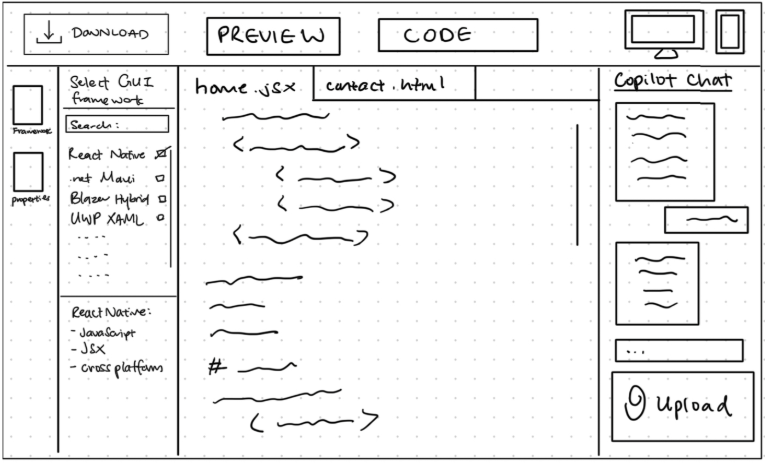 DOWNLOAD
PREVIEW
CODE
Framework
properties
Select GUI
framework
Search:
React Native
.net Maui
Blazer Hybrid
UWP XAML
....
....
....
React Native:
- JavaScript
- JSX
- cross platform
home.jsx
contact.html
<
>
<
>
<
>
<
>
#
<
>
Copilot Chat
...
Upload